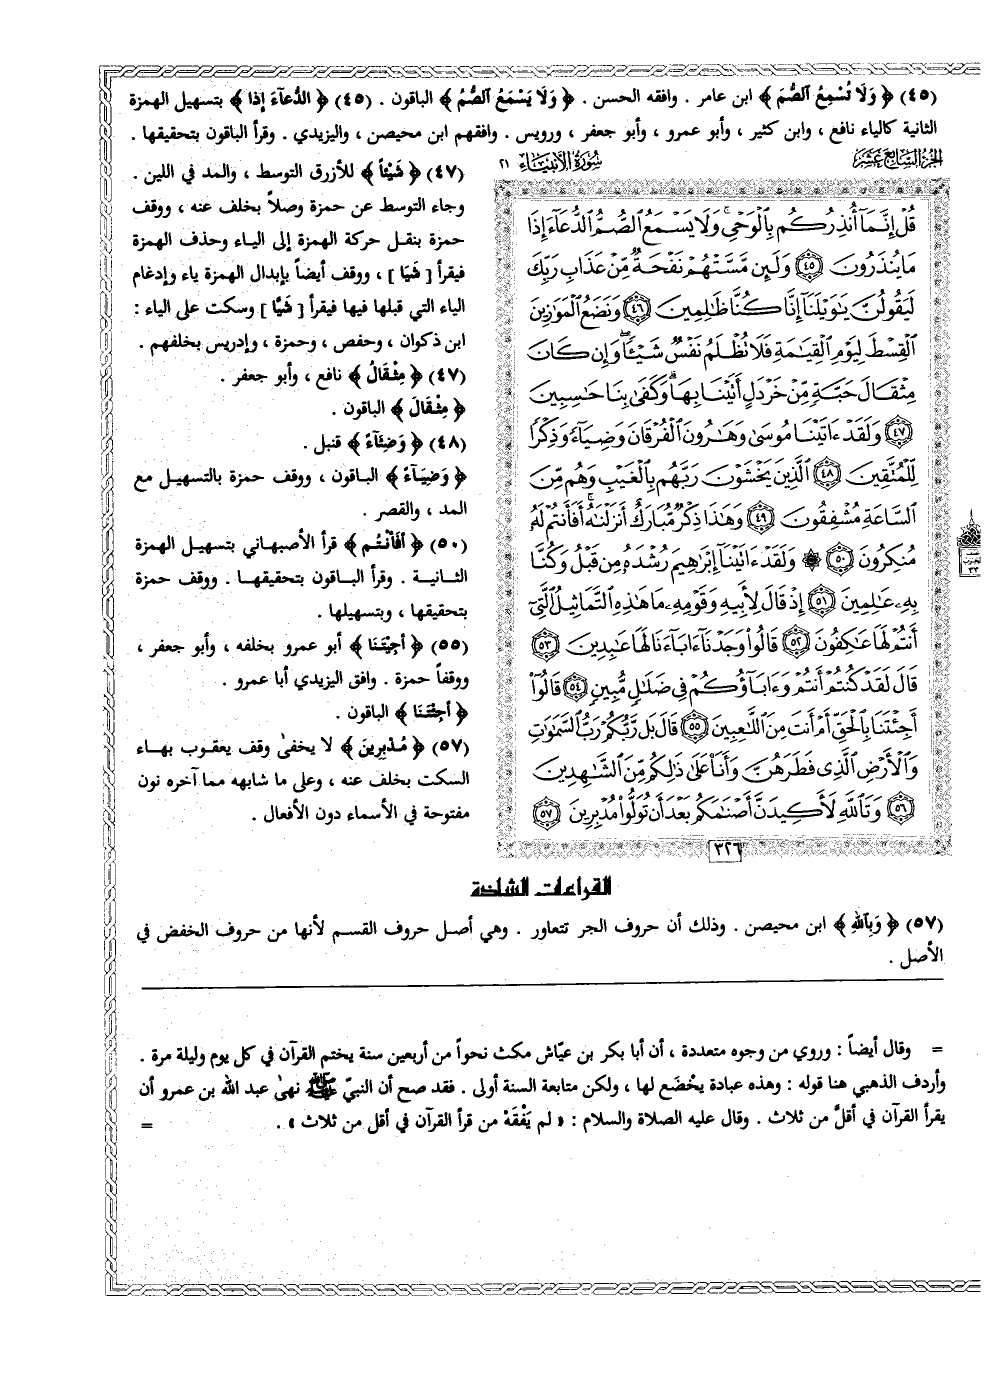 (٤٥) ﴿ وَلَا تُسْمِعُ ٱلصُّمَّ ﴾ ابن عامر . وافقه الحسن . ﴿ وَلَا يَسْمَعُ ٱلصُّمُّ ﴾ الباقون . (٤٥) ﴿ الدُّعآءَ إذا ﴾ بتسهيل الهمزة
الثانية كالياء نافع ، وابن كثير ، وأبو عمرو ، وأبو جعفر ، ورويس . وافقهم ابن محيصن ، واليزيدي . وقرأ الباقون بتحقيقها .
الجزء السابع عشر
سورة الأنبياء ٢١
قُلْ إِنَّمَآ أُنذِرُكُم بِٱلْوَحْىِ ۚ وَلَا يَسْمَعُ ٱلصُّمُّ ٱلدُّعَآءَ إِذَا
مَا يُنذَرُونَ ٤٥ وَلَئِن مَّسَّتْهُمْ نَفْحَةٌ مِّنْ عَذَابِ رَبِّكَ
لَيَقُولُنَّ يَٰوَيْلَنَآ إِنَّا كُنَّا ظَٰلِمِينَ ٤٦ وَنَضَعُ ٱلْمَوَٰزِينَ
ٱلْقِسْطَ لِيَوْمِ ٱلْقِيَٰمَةِ فَلَا تُظْلَمُ نَفْسٌ شَيْـًٔا ۖ وَإِن كَانَ
مِثْقَالَ حَبَّةٍ مِّنْ خَرْدَلٍ أَتَيْنَا بِهَا ۗ وَكَفَىٰ بِنَا حَٰسِبِينَ
٤٧ وَلَقَدْ ءَاتَيْنَا مُوسَىٰ وَهَٰرُونَ ٱلْفُرْقَانَ وَضِيَآءً وَذِكْرًا
لِّلْمُتَّقِينَ ٤٨ ٱلَّذِينَ يَخْشَوْنَ رَبَّهُم بِٱلْغَيْبِ وَهُم مِّنَ
ٱلسَّاعَةِ مُشْفِقُونَ ٤٩ وَهَٰذَا ذِكْرٌ مُّبَارَكٌ أَنزَلْنَٰهُ ۚ أَفَأَنتُمْ لَهُۥ
مُنكِرُونَ ٥٠ ۞ وَلَقَدْ ءَاتَيْنَآ إِبْرَٰهِيمَ رُشْدَهُۥ مِن قَبْلُ وَكُنَّا
بِهِۦ عَٰلِمِينَ ٥١ إِذْ قَالَ لِأَبِيهِ وَقَوْمِهِۦ مَا هَٰذِهِ ٱلتَّمَاثِيلُ ٱلَّتِىٓ
أَنتُمْ لَهَا عَٰكِفُونَ ٥٢ قَالُوا۟ وَجَدْنَآ ءَابَآءَنَا لَهَا عَٰبِدِينَ ٥٣
قَالَ لَقَدْ كُنتُمْ أَنتُمْ وَءَابَآؤُكُمْ فِى ضَلَٰلٍ مُّبِينٍ ٥٤ قَالُوٓا۟
أَجِئْتَنَا بِٱلْحَقِّ أَمْ أَنتَ مِنَ ٱللَّٰعِبِينَ ٥٥ قَالَ بَل رَّبُّكُمْ رَبُّ ٱلسَّمَٰوَٰتِ
وَٱلْأَرْضِ ٱلَّذِى فَطَرَهُنَّ وَأَنَا۠ عَلَىٰ ذَٰلِكُم مِّنَ ٱلشَّٰهِدِينَ
٥٦ وَتَٱللَّهِ لَأَكِيدَنَّ أَصْنَٰمَكُم بَعْدَ أَن تُوَلُّوا۟ مُدْبِرِينَ ٥٧
٣٢٦
(٤٧) ﴿ شَيْئاً ﴾ للأزرق التوسط ، والمد في اللين .
وجاء التوسط عن حمزة وصلاً بخلف عنه ، ووقف
حمزة بنقل حركة الهمزة إلى الياء وحذف الهمزة
فيقرأ [ شَيَا ] ، ووقف أيضاً بإبدال الهمزة ياء وإدغام
الياء التي قبلها فيها فيقرأ [ شَيَّا ] وسكت على الياء :
ابن ذكوان ، وحفص ، وحمزة ، وإدريس بخلفهم .
(٤٧) ﴿ مِثْقَالُ ﴾ نافع ، وأبو جعفر .
﴿ مِثْقَالَ ﴾ الباقون .
(٤٨) ﴿ وَضِئَآءً ﴾ قنبل .
﴿ وَضِيَآءً ﴾ الباقون ، ووقف حمزة بالتسهيل مع
المد ، والقصر .
(٥٠) ﴿ أفأنْتُم ﴾ قرأ الأصبهاني بتسهيل الهمزة
الثانية . وقرأ الباقون بتحقيقها . ووقف حمزة
بتحقيقها ، وبتسهيلها .
(٥٥) ﴿ أجِيْتَنَا ﴾ أبو عمرو بخلفه ، وأبو جعفر ،
ووقفاً حمزة . وافق اليزيدي أبا عمرو .
﴿ أجِئْتَنَا ﴾ الباقون .
(٥٧) ﴿ مُدْبِرِينَ ﴾ لا يخفىٰ وقف يعقوب بهاء
السكت بخلف عنه ، وعلى ما شابهه مما آخره نون
مفتوحة في الأسماء دون الأفعال .
القراءات الشاذة
(٥٧) ﴿ وَبِاللهِ ﴾ ابن محيصن . وذلك أن حروف الجر تتعاور . وهي أصل حروف القسم لأنها من حروف الخفض في
الأصل .
= وقال أيضاً : وروي من وجوه متعددة ، أن أبا بكر بن عيّاش مكث نحواً من أربعين سنة يختم القرآن في كل يوم وليلة مرة .
وأردف الذهبي هنا قوله : وهذه عبادة يخْضَع لها ، ولكن متابعة السنة أولى . فقد صح أن النبيّ ﷺ نهىٰ عبد الله بن عمرو أن
يقرأ القرآن في أقلَّ من ثلاث . وقال عليه الصلاة والسلام : « لم يَفْقَهْ من قرأ القرآن في أقل من ثلاث » . =